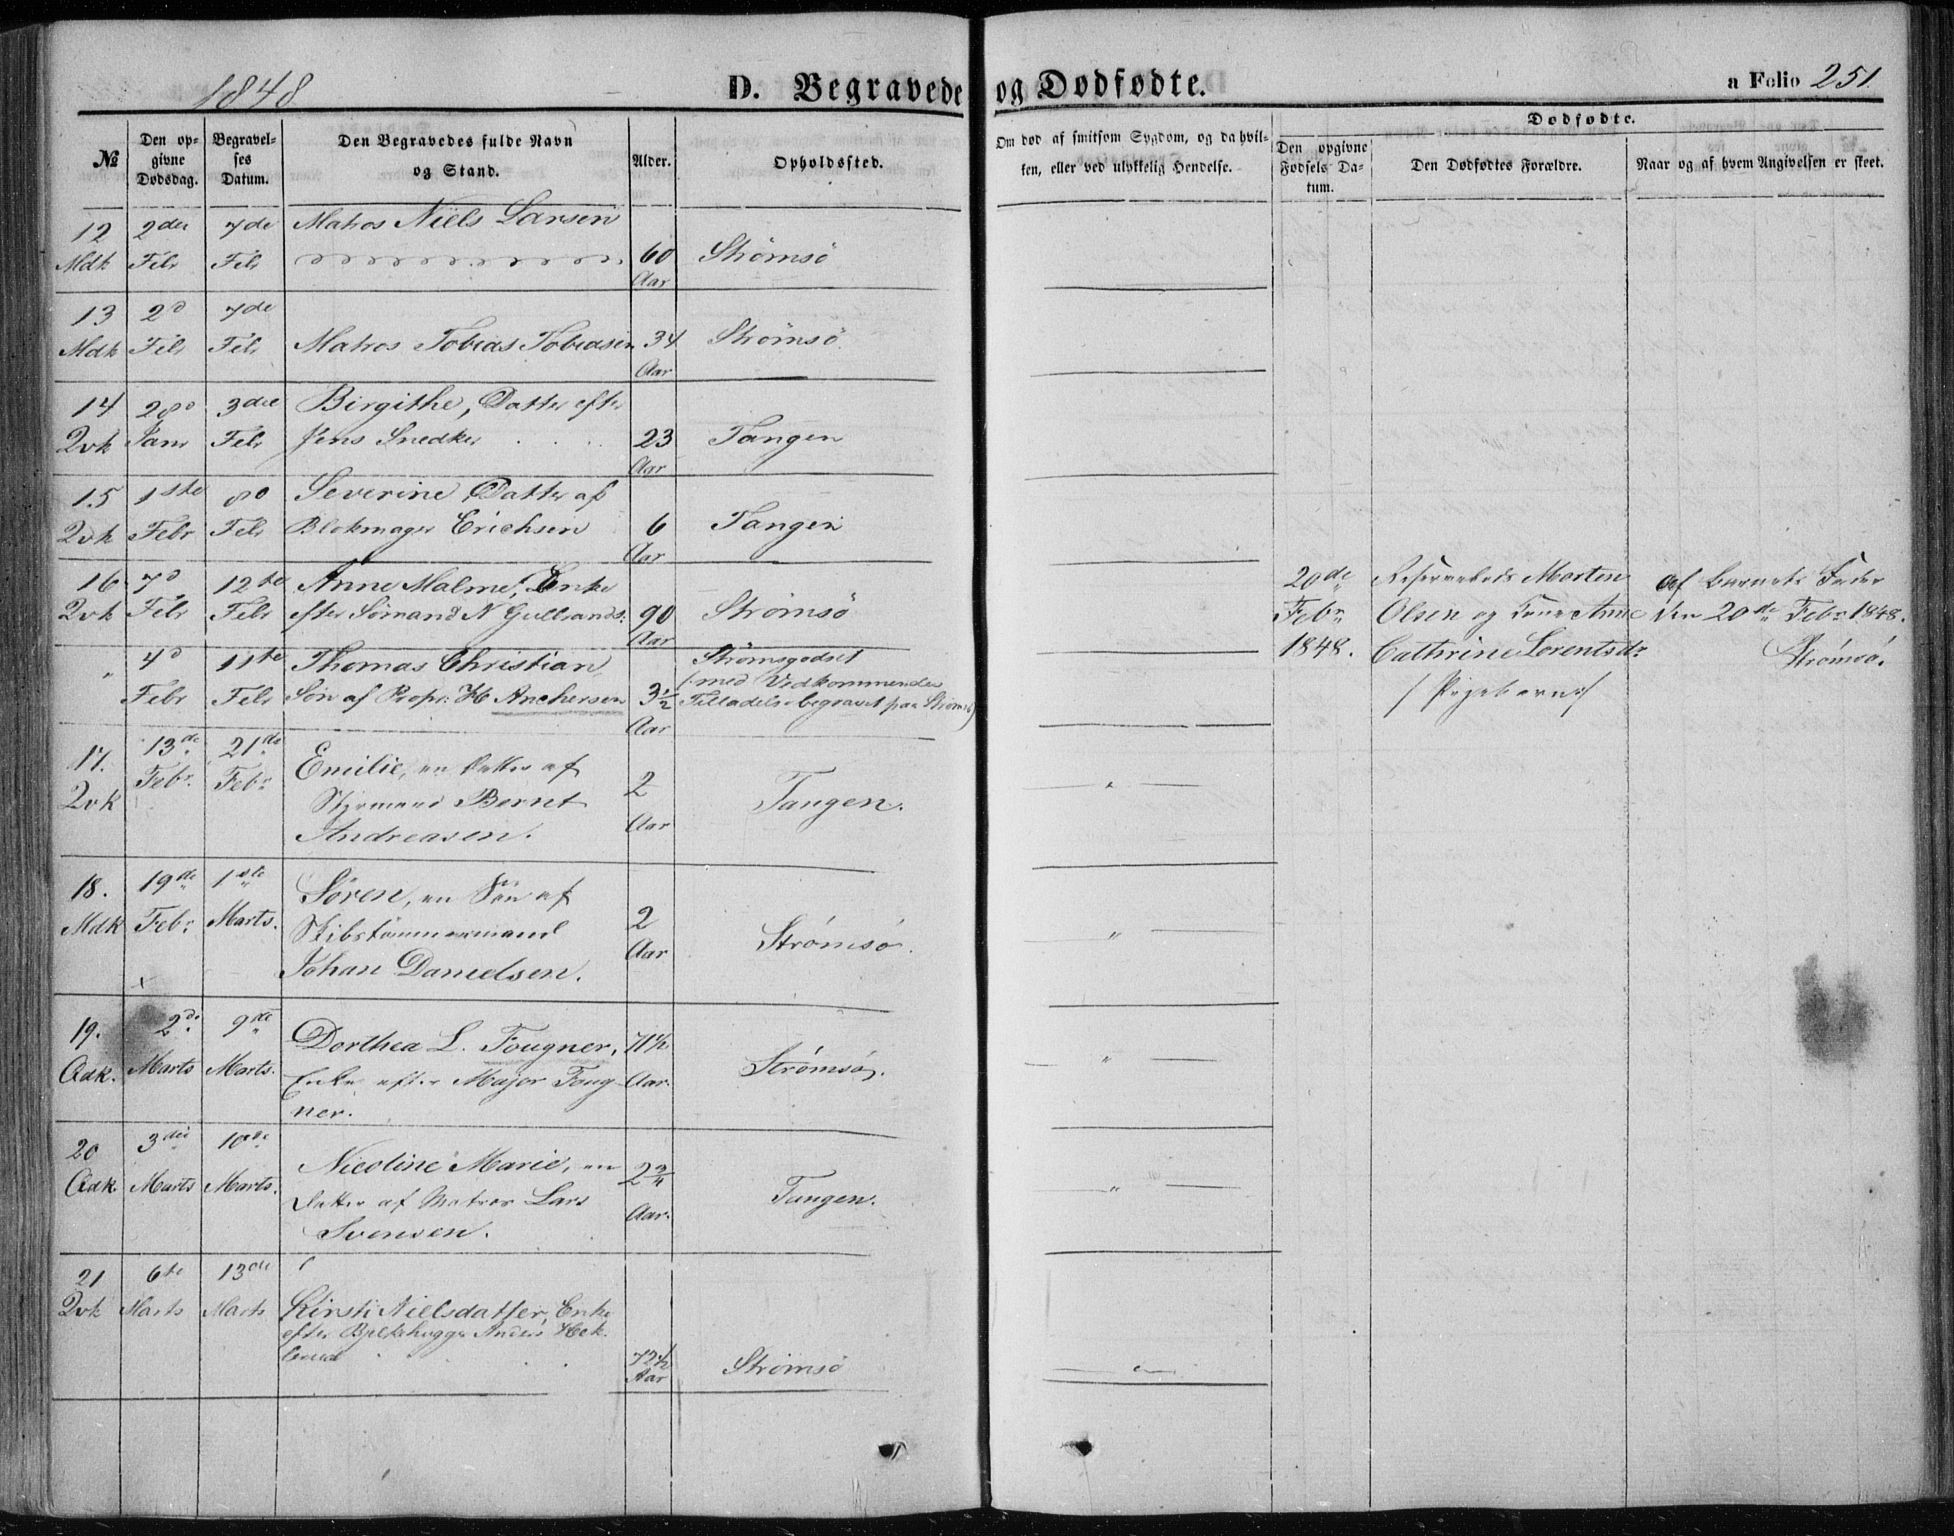 1848 D. Begravede og Dødfødte. a Folio 251
№ Den opgivne Dødsdag. Begravelses Datum. Den Begravedes fulde Navn og Stand. Alder. Opholdssted. Om død af smitsom Sygdom, og da hvilken, eller ved ulykkelig Hendelse. Dødfødte. Den opgivne Fødsels Datum. Den Dødfødtes Forældre. Naar og af hvem Angivelsen er skeet.
12 2den 7de Matros Niels Larsen
Mdk Febr Febr 60 Strømsö
Aar
13 2d 7de
Mdk Febr Febr Matros Tobias Tobiasen 34 Strømsö
Aar
14 28d 3die Birgithe, Datter efter
Qvk Janr Febr Jens Snedker 23 Tangen
Aar
15 1ste 8d Severine, Datter af
Qvk Febr Febr Blokmager Erichsen 6 Tangen
Aar
16 7d 12te Anne Malme, Enke
Qvk Febr Febr efter Sømand N Gulbrands: 90 Strømsö
Aar
" 4d 11te Thomas Christian, Strømsgodset
Febr Febr Søn af Propr: H Anchersen 3½ (med Vedkommendes
Aar Tilladelse begravet paa Strømsö)
17. 13de 21de Emilie, en Datter af
Qvk Febr. Febr. Styrmand Bernt 2 Tangen. "
Andreasen. Aar
18. 19de 1ste Sören, en Sön af
Mdk Febr Marts. Skibstömmermand 2 Strömsö. "
Johan Danielsen. Aar
19. 2de 9de Dorthea L. Fougner, 71½
Adk. Marts Marts. Enke efter Major Foug- Aar. Strømsö. "
ner.
20 3die 10de Nicoline Marie, en 2¾
Adk. Marts Marts. Datter af Matros Lars Aar. Tangen. "
Svensen.
21 6te 13de
Qvk Marts Marts Kirsti Nielsdatter, Enke
efter Bjelkehugger Anders
72½ Strømsö "
Aar
20de Morten af Barnets Fader
Febr. Olsen og Kone Anne den 20de Febr. 1848.
1848. Cathrine Lorentsdr Strömsö.
/Pigebarn/